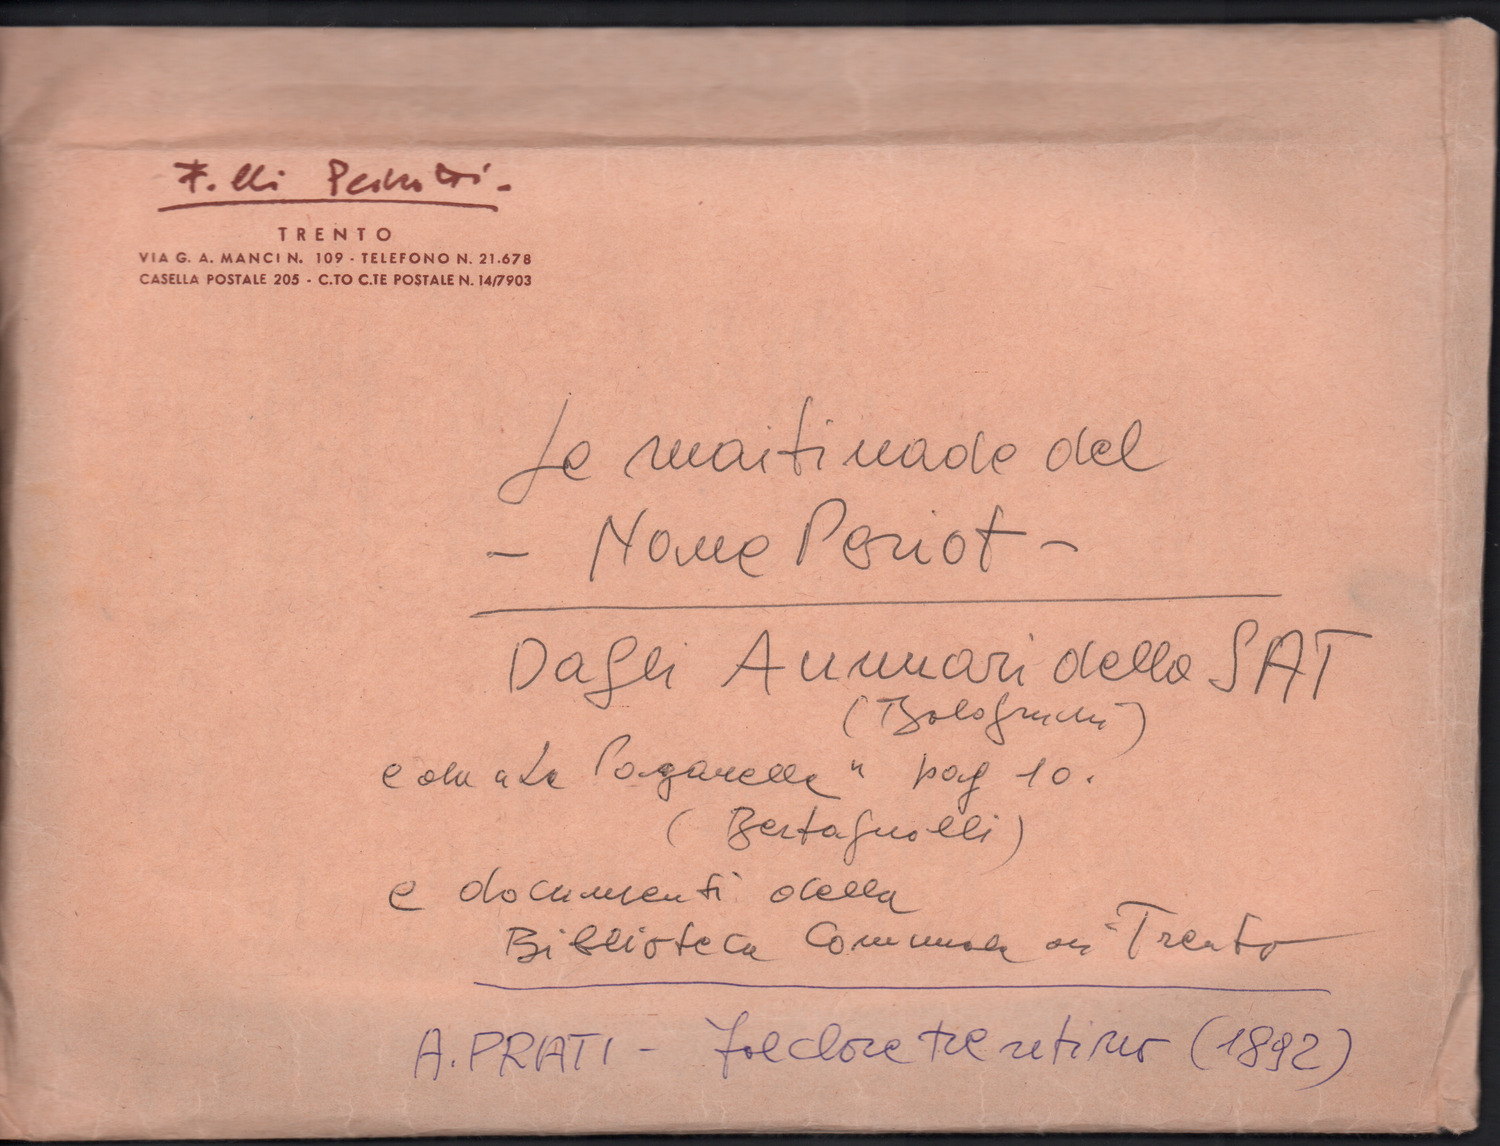 F.lli Pedrotti.
TRENTO
VIA G. A. MANCI N. 109 - TELEFONO N. 21.678
CASELLA POSTALE 205 - C.TO C.TE POSTALE N. 14/7903
Le maitinade del
- None Periot -
Dagli Annuari della SAT
(Bolognini)
e da "La Pagarella" pag 10.
(Bertagnolli)
e documenti della
Biblioteca Comunale di Trento
A. PRATI - Folclore trentino (1892)